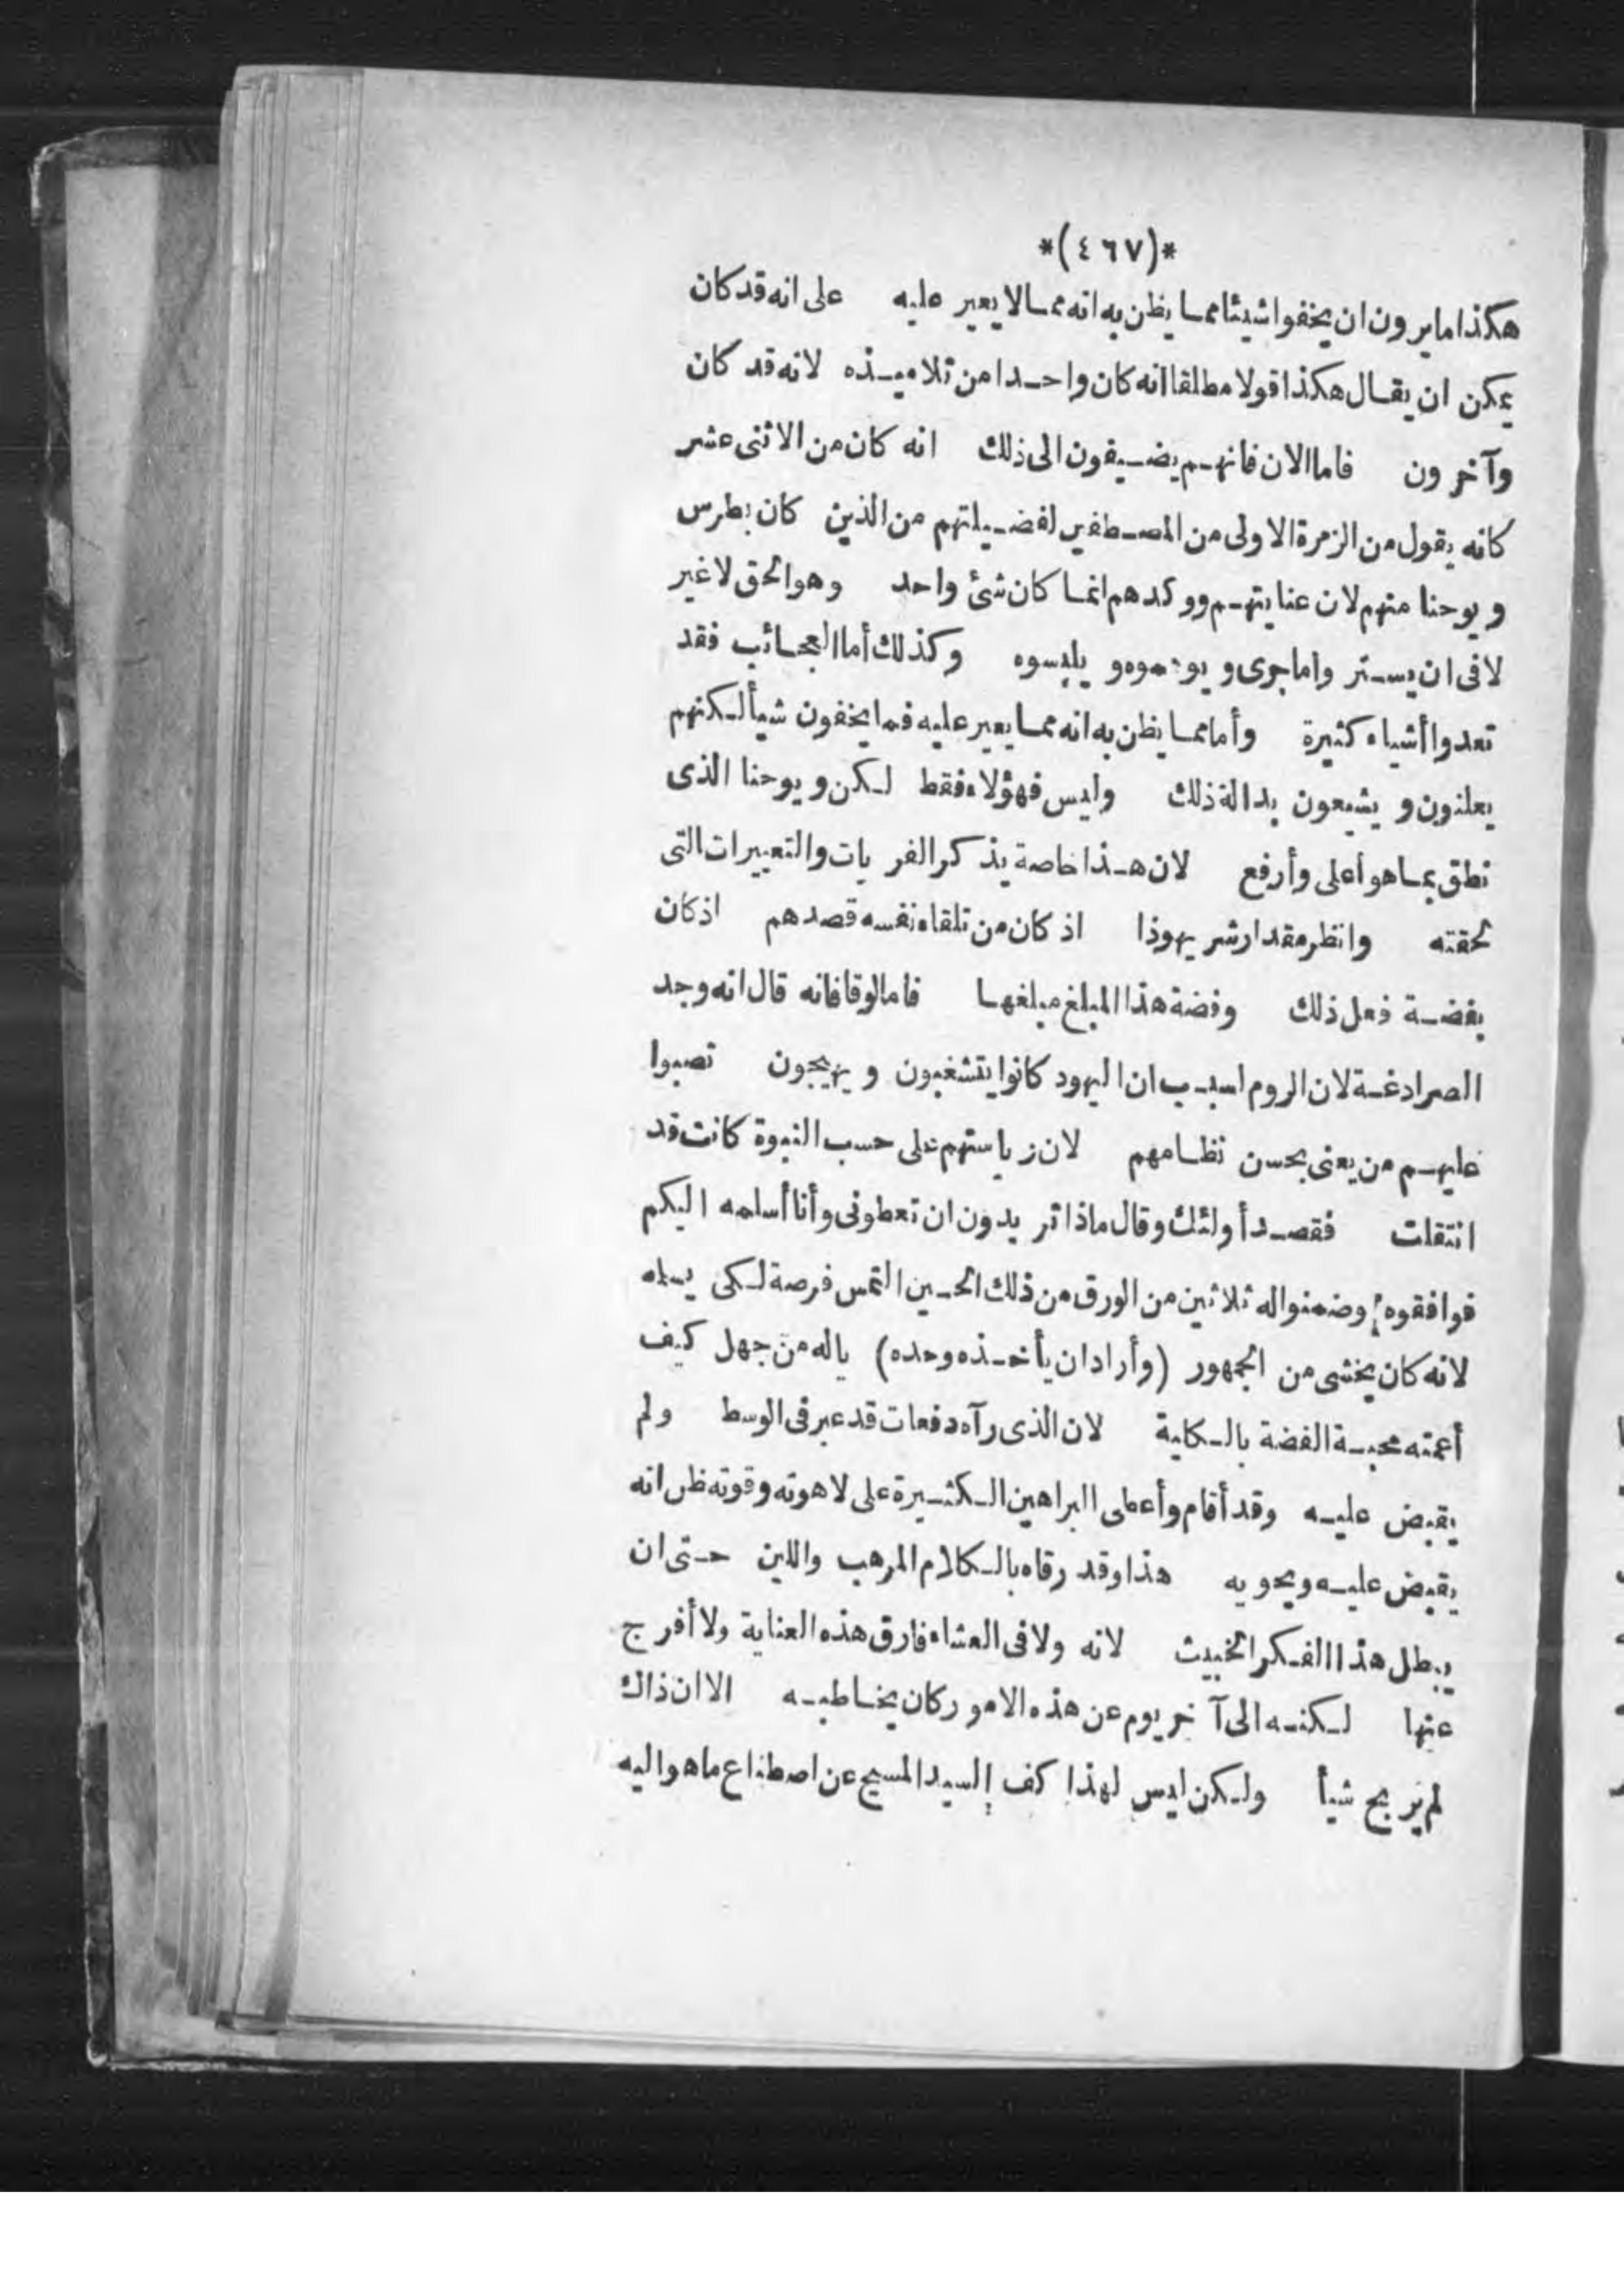 *(٤٦٧)*
هكذا ما يرون ان يخفوا شيئا مما يظن به انه مما لا يعير عليه على انه قد كان
يمكن ان يقال هكذا قولا مطلقا انه كان واحدا من تلاميذه لانه قد كان
وآخرون فاما الان فانهم يضيفون الى ذلك انه كان من الاثنى عشر
كانه يقول من الزمرة الاولى من المصطفين لفضيلتهم من الذين كان بطرس
ويوحنا منهم لان عنايتهم ووكدهم انما كان شئ واحد وهو الحق لا غير
لا فى ان يستروا ما جرى و يلبسوه وكذلك أما العجائب فقد
تعدوا أشياء كثيرة وأما مما يظن به انه مما يعير عليه فما يخفون شيأ لكنهم
يعلنون ويشيعون بدالة ذلك وليس فهؤلاء فقط لكن ويوحنا الذى
نطق بما هو أعلى وأرفع لان هذا خاصة يذكر الفريات والتعييرات التى
لحقته وانظر مقدار شر يهوذا اذ كان من تلقاء نفسه قصدهم اذ كان
بفضة فعل ذلك وفضة هذا المبلغ مبلغها فاما لوقا فانه قال انه وجد
الصرادغة لان الروم لسبب ان اليهود كانوا يتشغبون ويهيجون نصبوا
عليهم من يعنى بحسن نظامهم لان رياستهم على حسب النبوة كانت قد
انتقلت فقصد أولئك وقال ماذا تريدون ان تعطونى وأنا أسلمه اليكم
فوافقوه وضمنوا له ثلاثين من الورق من ذلك الحين التمس فرصة لكى يسلمه
لانه كان يخشى من الجمهور (وأراد ان يأخذه وحده) ياله من جهل كيف
أعمته محبة الفضة بالكلية لان الذى رآه دفعات قد عبر فى الوسط ولم
يقبض عليه وقد أقام وأعطى البراهين الكثيرة على لاهوته وقوته ظن انه
يقبض عليه ويحويه هذا وقد رقاه بالكلام المرهب واللين حتى ان
يبطل هذا الفكر الخبيث لانه ولا فى العشاء فارق هذه العناية ولا أفرج
عنها لكنه الى آخر يوم عن هذه الامور كان يخاطبه الا ان ذاك
لم يربح شيأ ولكن ليس لهذا كف السيد المسيح عن اصطناع ما هو اليه